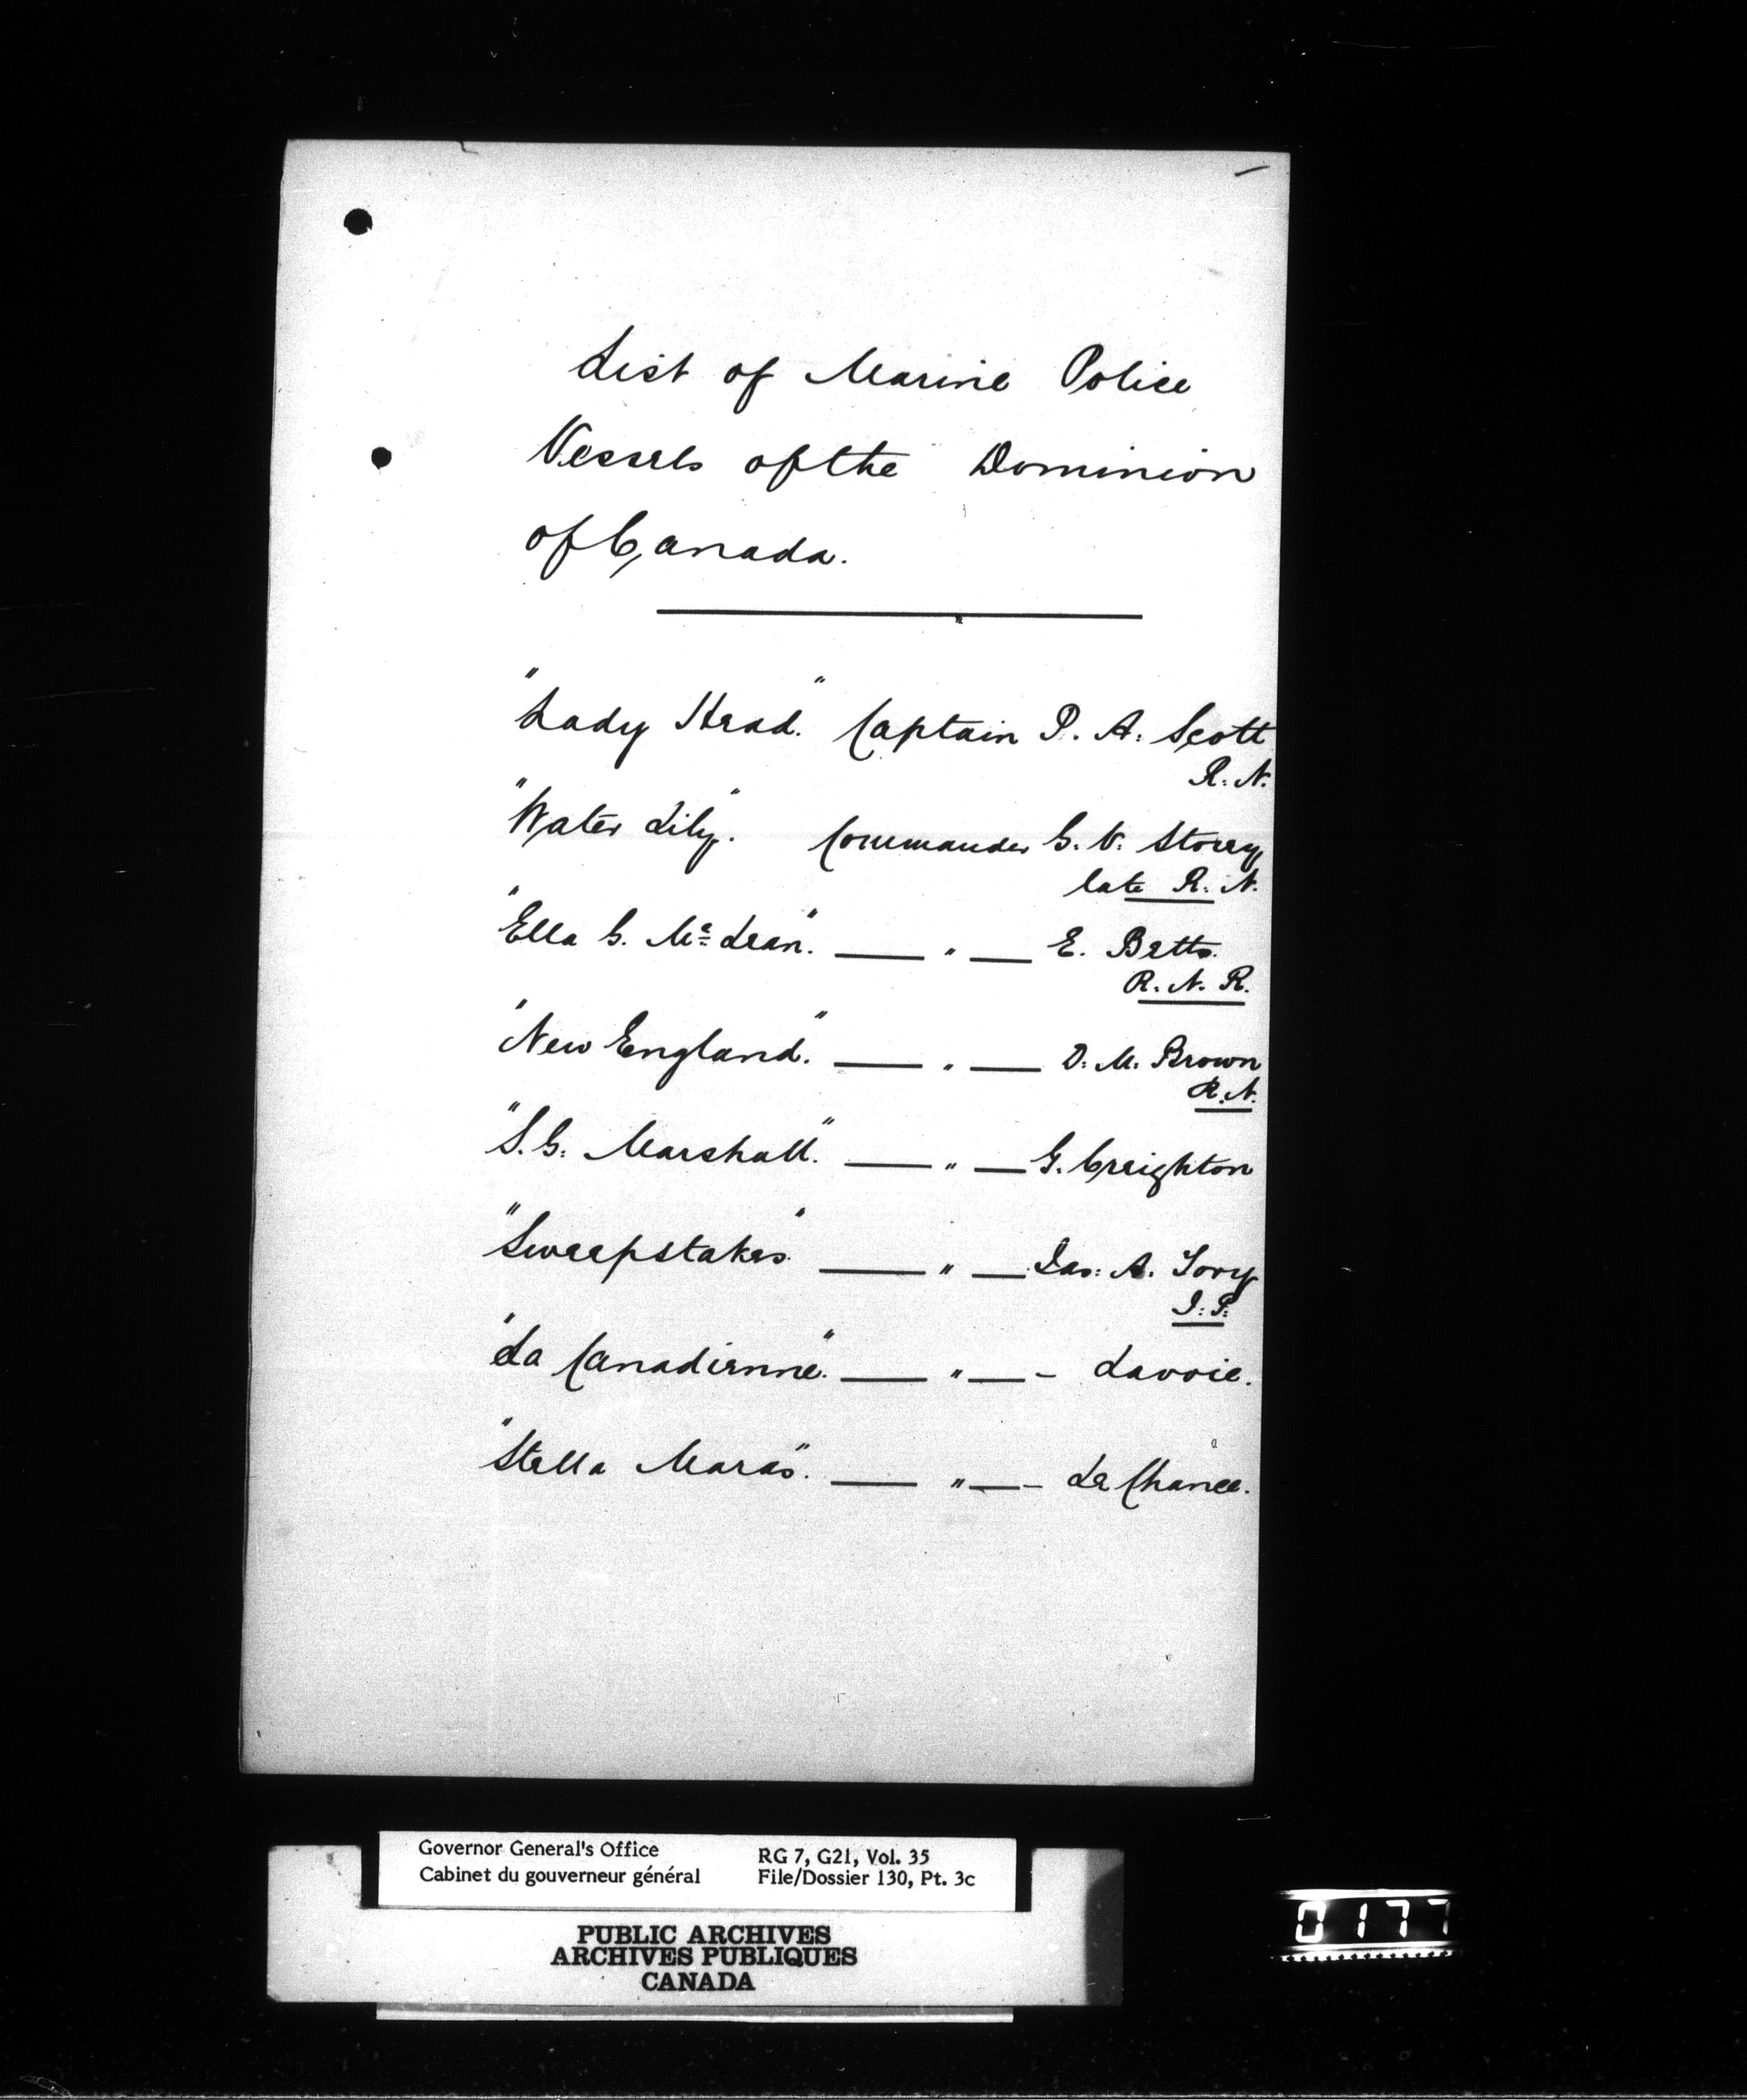 List of Marine Police
Vessels of the Dominion
of Canada.
"Lady Head." Captain P. A. Scott
R. N.
"Water Lily". Commander G. V. Storey
late R. N.
"Ella G. Mc Lean". — " — E. Betts.
R. N. R.
"New England." — " — D. M. Brown
R. N.
"S. G. Marshall." — " — G. Creighton
"Sweepstakes" — " — Jas: A. Tory
J. P.
"La Canadienne." — " — Lavoie.
"Stella Maras". — " — La Chance.
Governor General's Office
Cabinet du gouverneur général
RG 7, G21, Vol. 35
File/Dossier 130, Pt. 3c
PUBLIC ARCHIVES
ARCHIVES PUBLIQUES
CANADA
0177